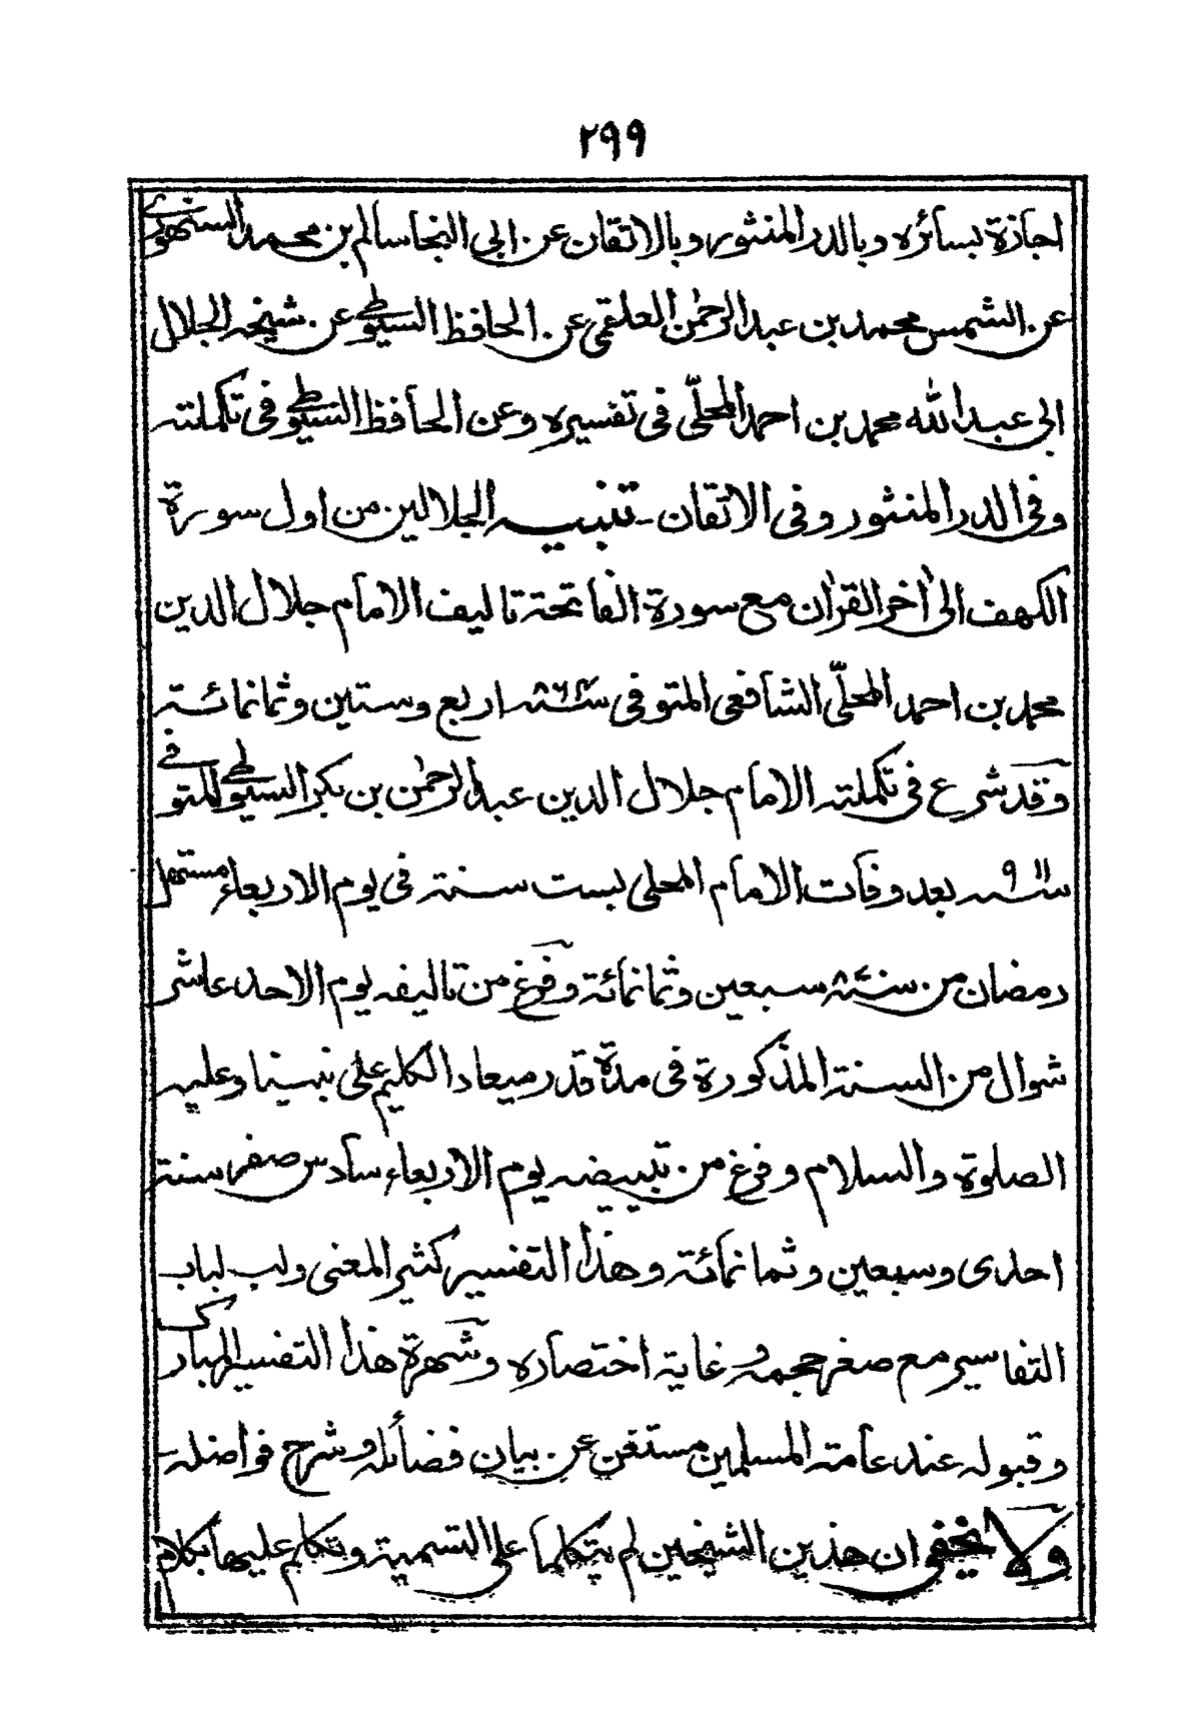 ٢٩٩
اجازة بسائره وبالدر المنثور وبالاتقان عن ابى النجا سالم بن محمد السنهورى
عن الشمس محمد بن عبد الرحمٰن العلقمى عن الحافظ السيوطى عن شيخه الجلال
ابى عبد الله محمد بن احمد المحلّى فى تفسيره وعن الحافظ السيوطى فى تكملته
وفى الدر المنثور وفى الاتقان - تنبيه الجلالين من اول سورة
الكهف الىٰ اٰخر القراٰن مع سورة الفاتحة تاليف الامام جلال الدين
محمد بن احمد المحلّى الشافعى المتوفى سنة ٨٦٤ه اربع وستين وثمانمائة
وقد شرع فى تكملته الامام جلال الدين عبد الرحمٰن بن بكر السيوطى المتوفى
سنة ٩١١ه بعد وفات الامام المحلى بست سنة فى يوم الاربعاء مستهل
رمضان من سنة ٨٧٠ه سبعين وثمانمائة وفرغ من تاليفه يوم الاحد عاشر
شوال من السنة المذكورة فى مدة قدر ميعاد الكليم على نبينا وعليه
الصلوة والسلام وفرغ من تبييضه يوم الاربعاء سادس صفر سنة
احدى وسبعين وثمانمائة وهذا التفسير كثير المعنى ولب لباب
التفاسير مع صغر حجمه و غاية اختصاره وشهرة هذا التفسير المبارك
وقبوله عند عامة المسلمين مستغن عن بيان فضائله وشرح فواضله -
ولا يخفى ان هذين الشيخين لم يتكلما على التسمية وتكلم عليها بكلام